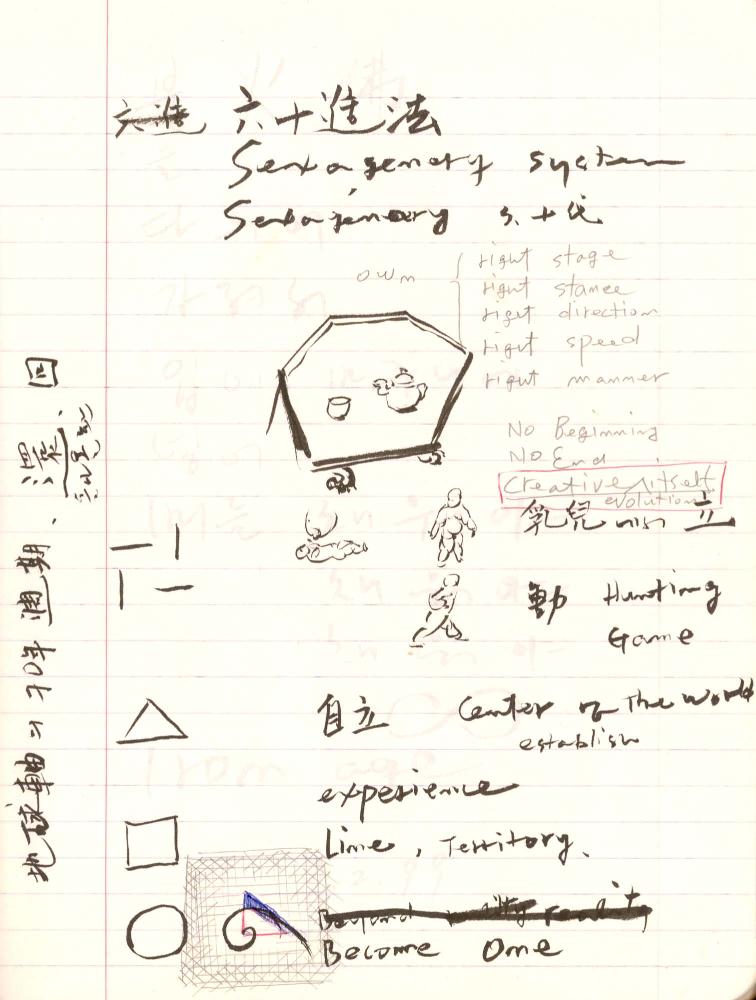 六進 六十進法
Sexagenary system
Sexagenary
own
right stage
right stance
right direction
right speed
right manner
No Beginning
No End
Creative itself
evolution
乳兒 立
動 Hunting
Game
自立 Center of the world
establish
experience
Line, Territory.
Become One
地球軸 年 週期